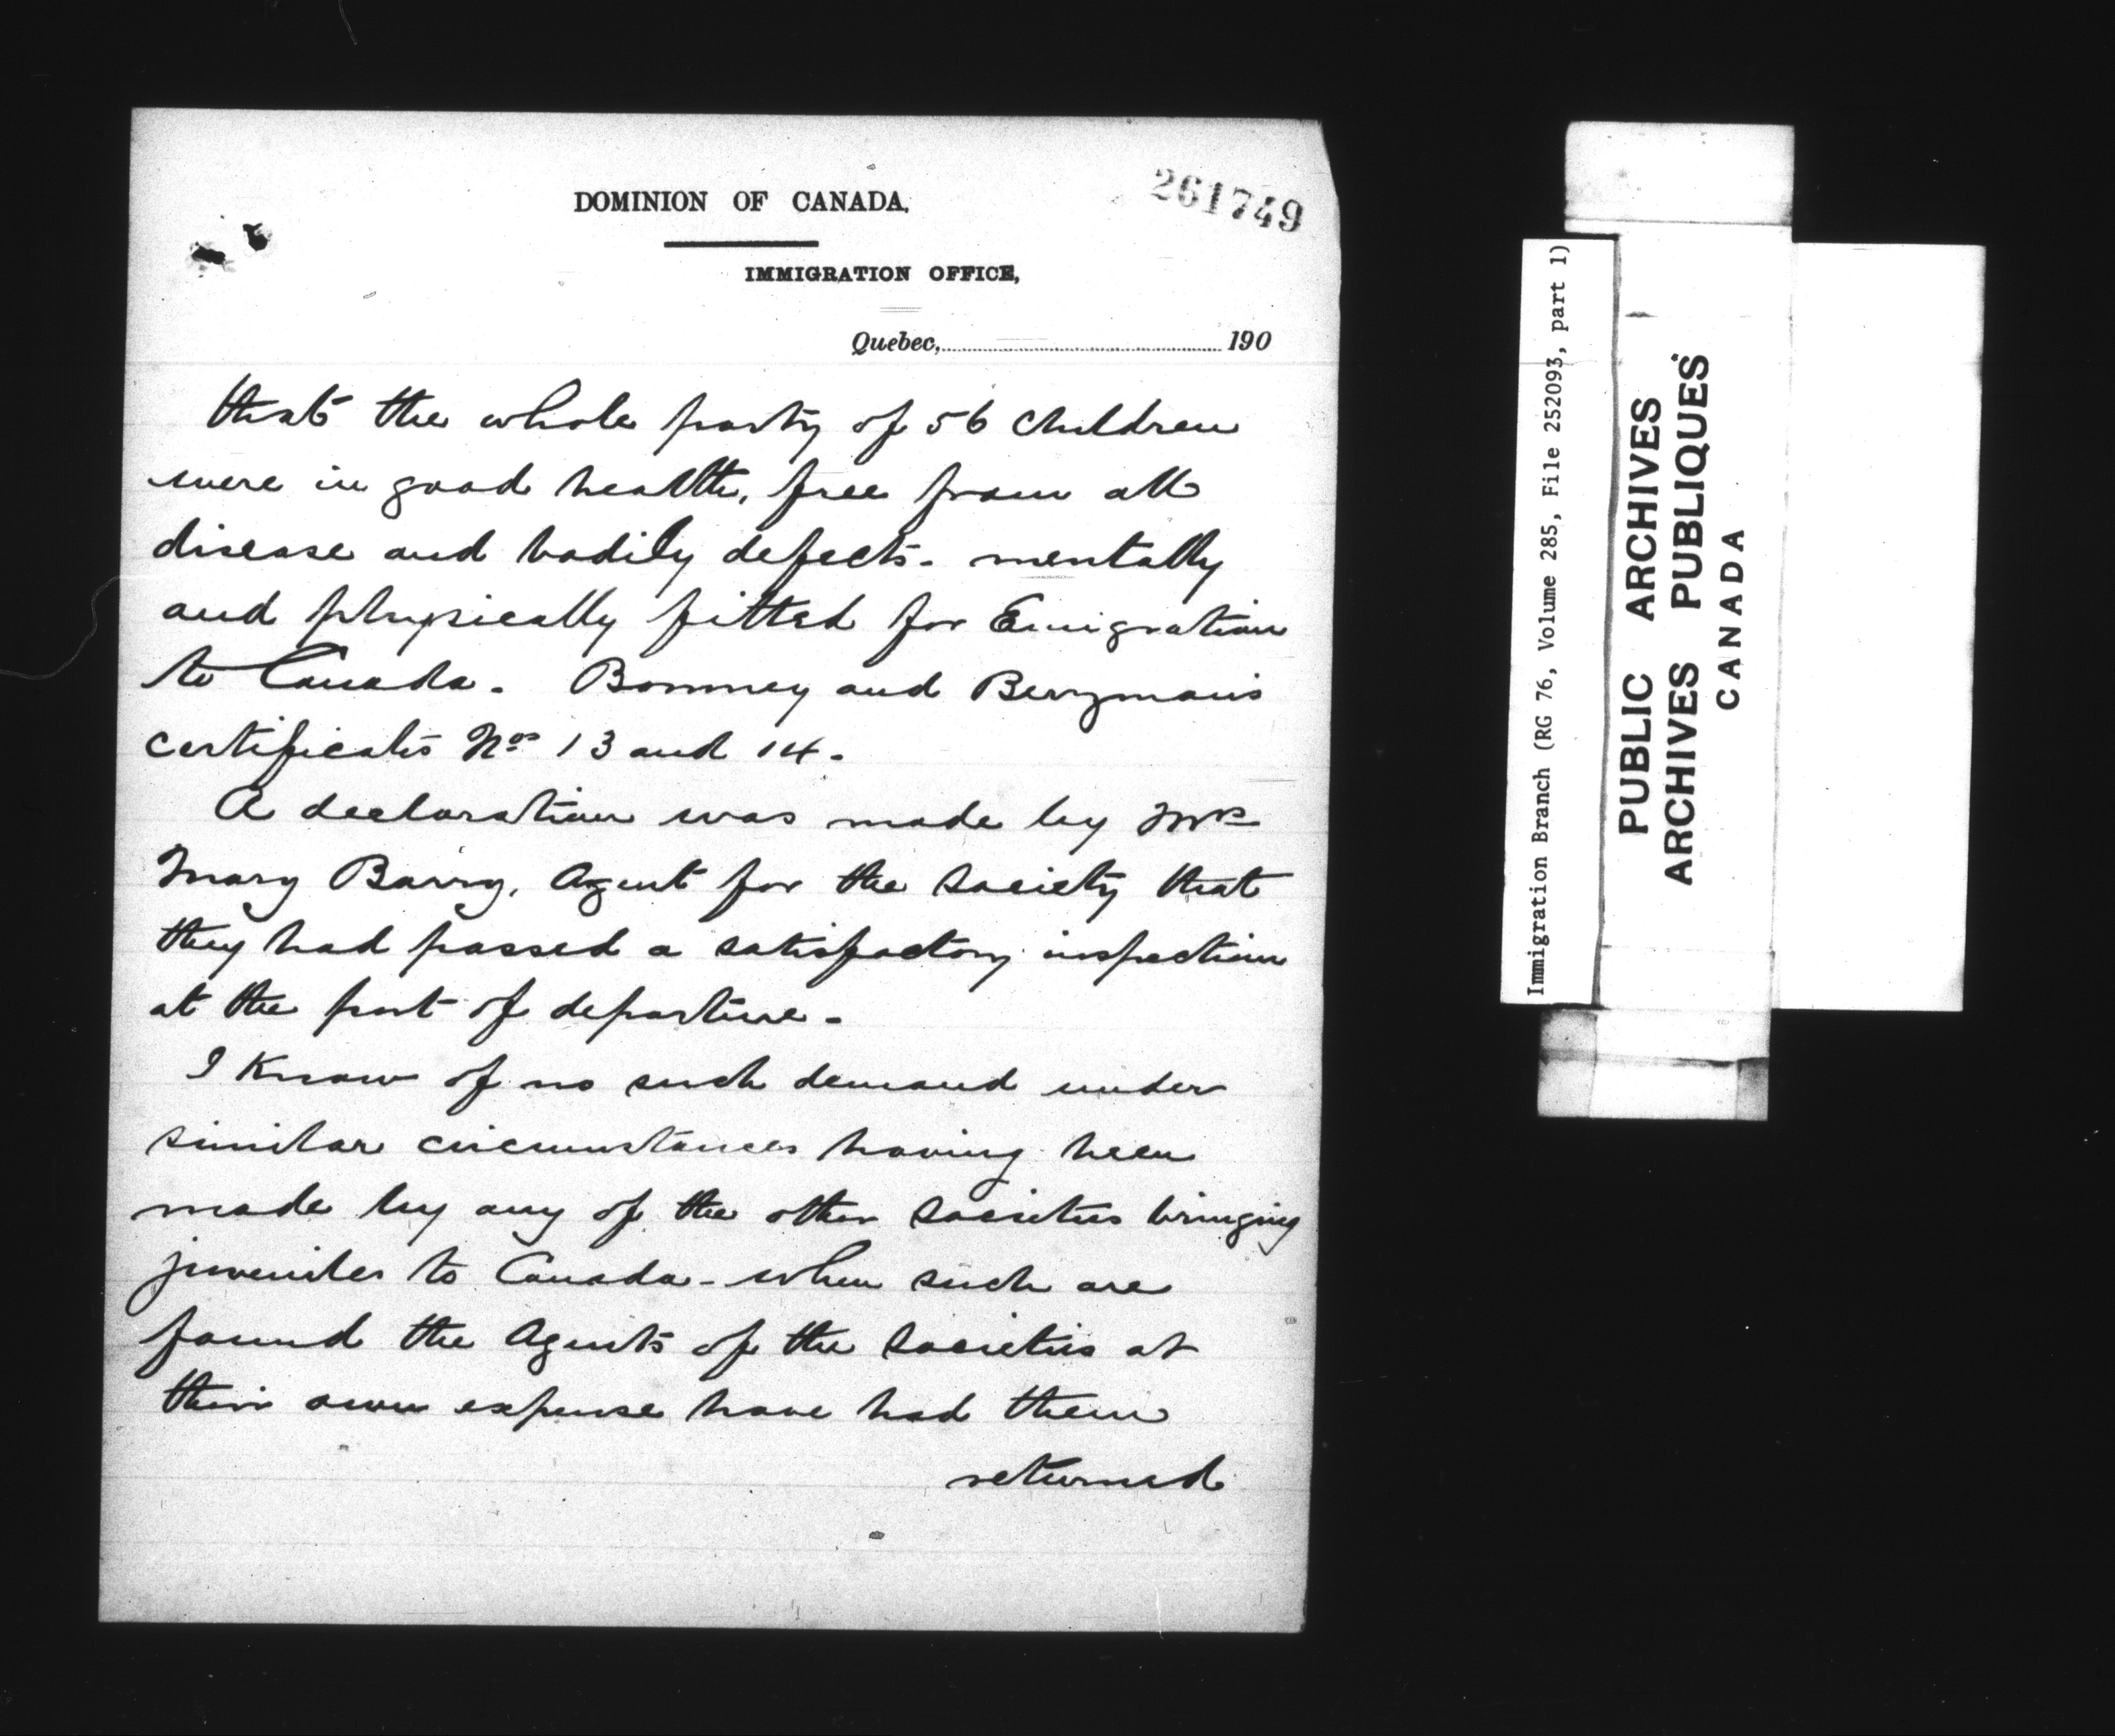 261749
DOMINION OF CANADA.
IMMIGRATION OFFICE,
Quebec, 190
that the whole party of 56 children
were in good health, free from all
disease and bodily defects. mentally
and physically fitted for Emigration
to Canada. Bommey and Bergman's
certificates Nos 13 and 14.
A declaration was made by Mrs
Mary Barry, Agent for the Society that
they had passed a satisfactory inspection
at the port of departure.
I know of no such demand under
similar circumstances having been
made by any of the other Societies bringing
juveniles to Canada - when such are
found the Agents of the Societies at
their own expense have had them
returned
Immigration Branch (RG 76, Volume 285, File 252093, part 1)
PUBLIC ARCHIVES
ARCHIVES PUBLIQUES
CANADA